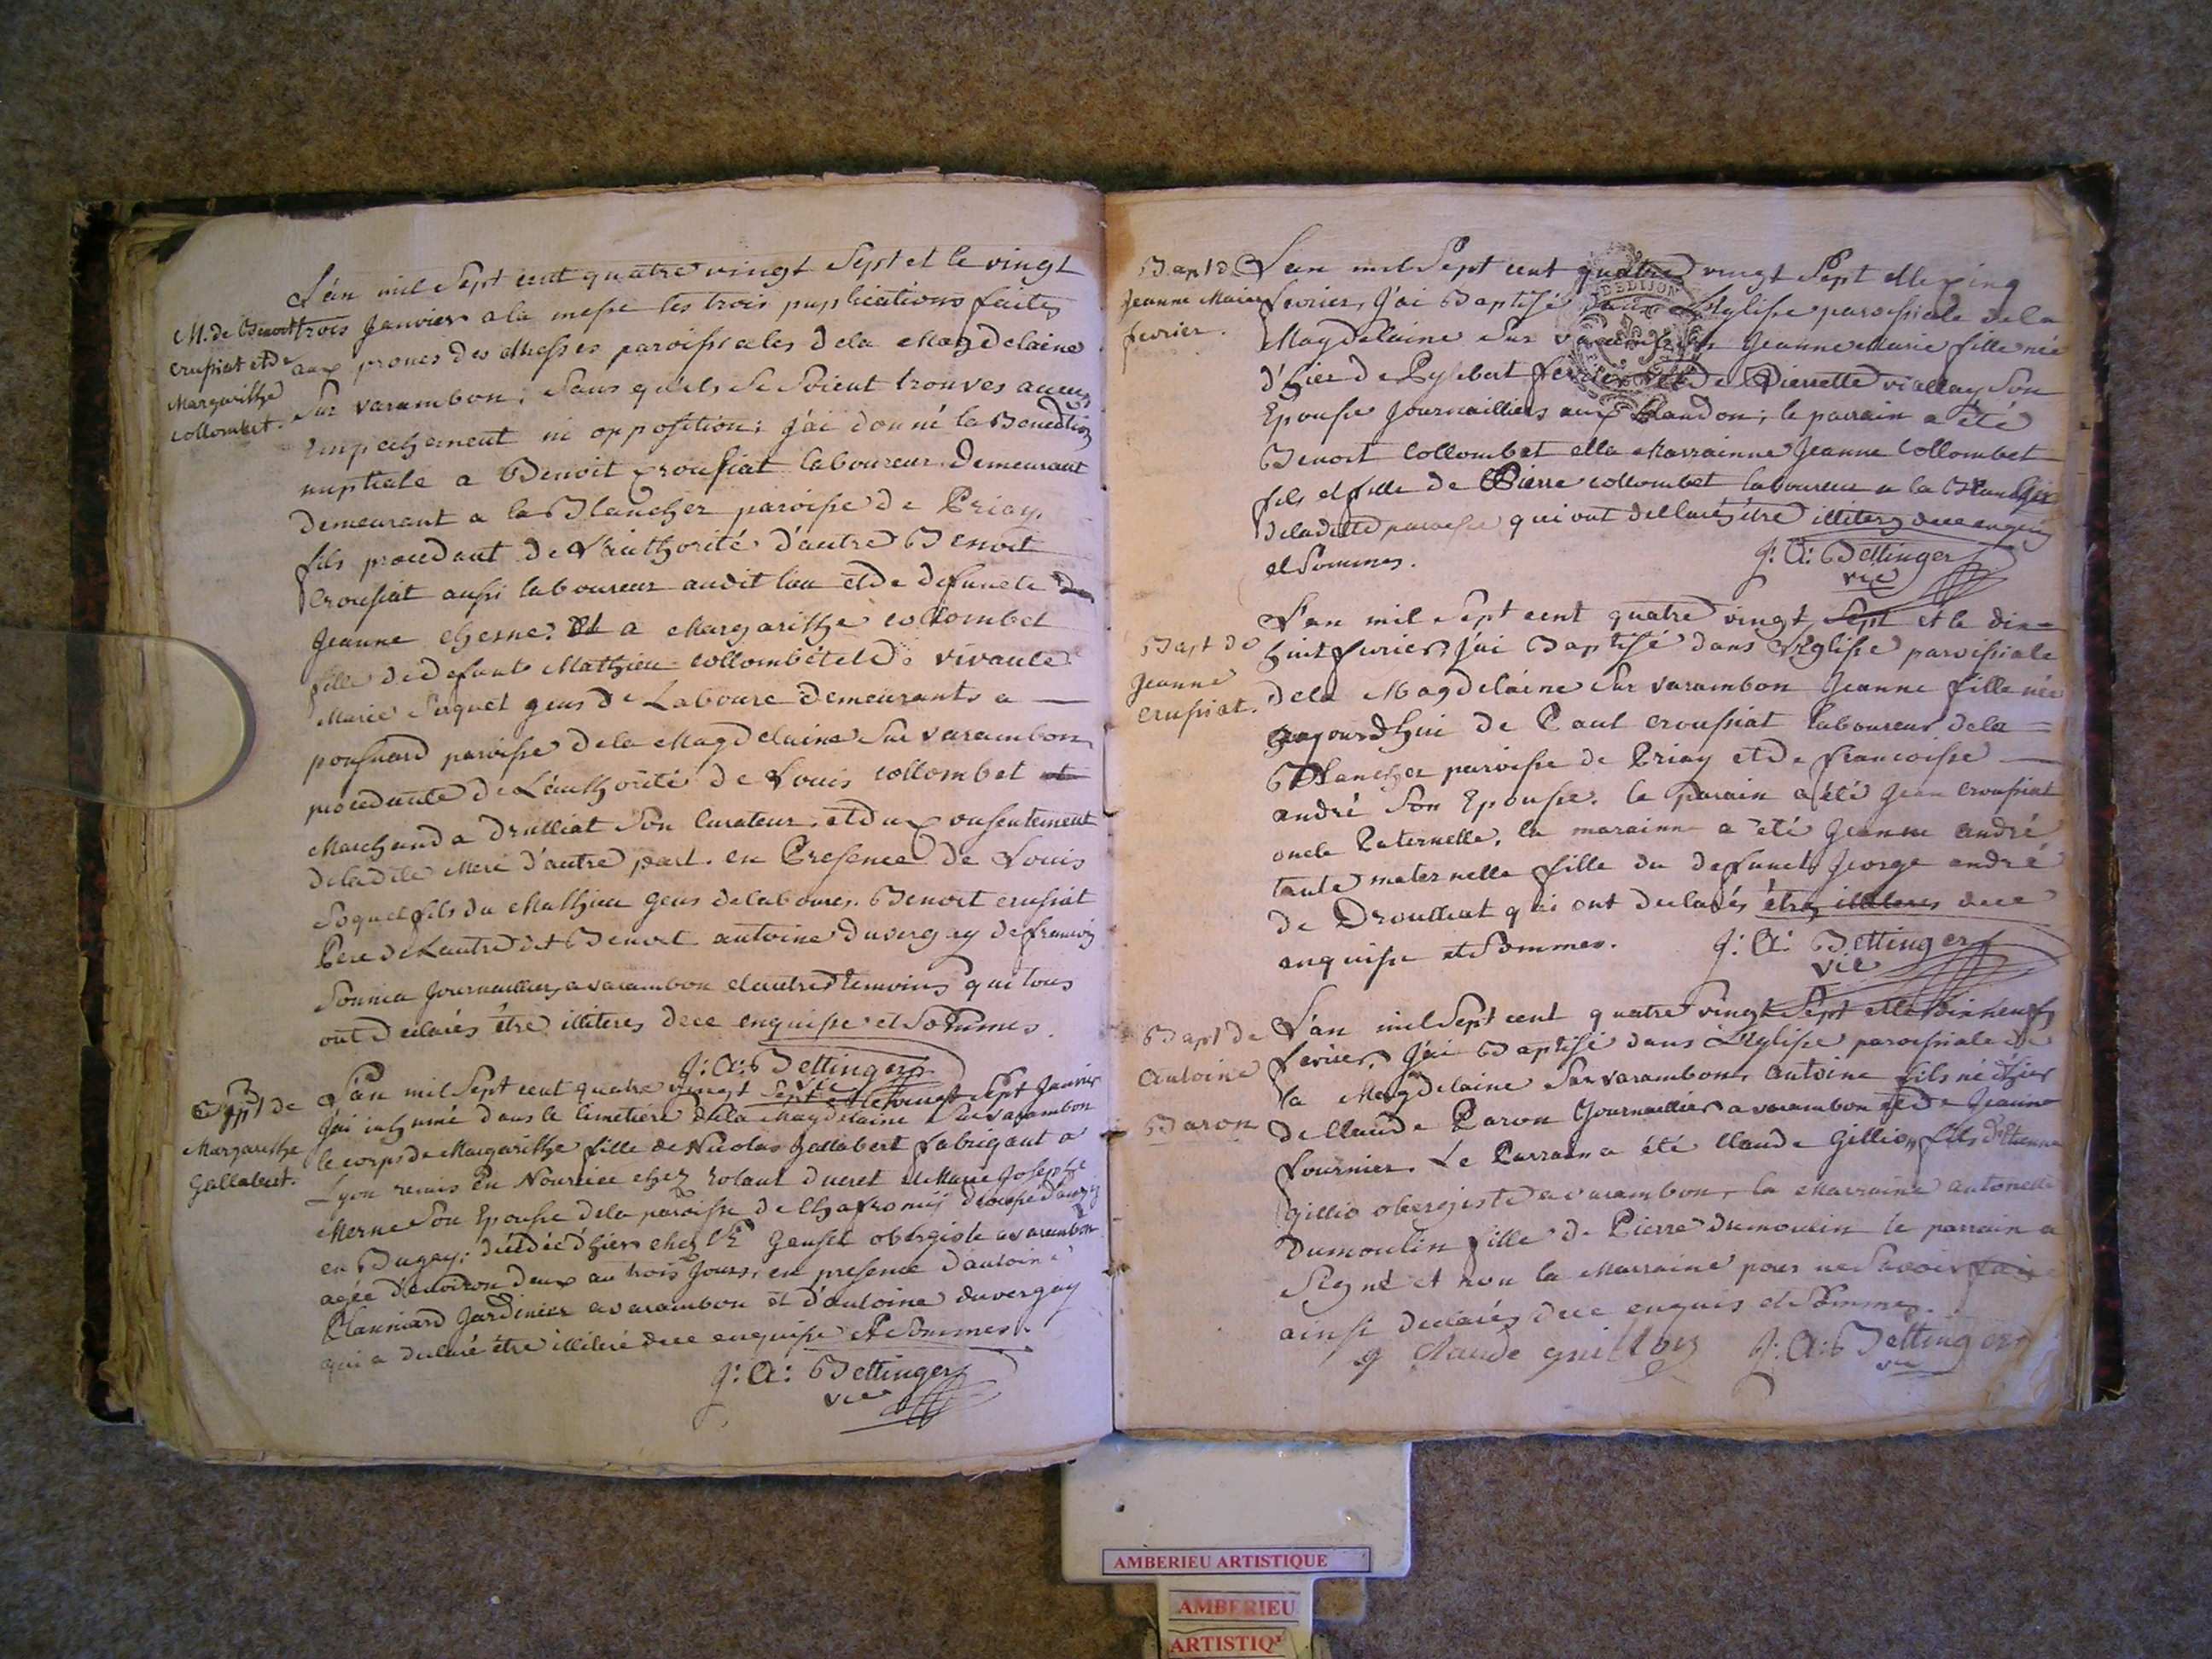 L'an mil Sept cent quatre vingt Sept et le vingt
M. de Benoit
crussiat et de
Margarithe
collombet.
trois Janvier a la messe les trois puplications faites
aux prones des Messes paroissiales dela Magdelaine
Sur varambon; Sans qu'ils Se Soient trouves aucun
Empechement ni opposition; j'ai donné la Benediction
nuptiale a Benoit croussiat laboureur Demeurant
Demeurant a la Blancher paroisse de Priay,
fils procedant de L'authorité d'autre Benoit
Croussiat aussi laboureur audit lieu et de defuncte
Jeanne chesne. Et a Margarithe collombet
fille de defunt Mathieu collombet et de vivante
Marie Soquet gens de Laboure demeurants a
poussuard paroisse dela Magdelaine Sur varambon
procedante de L'authorité de Louis collombet
Marchand a Drulliat Son Curateur, et du consentement
deladite Mere d'autre part. en Presence de Louis
Soquet fils du Mathieu gens delaboures. Benoit crussiat
Pere de Lautre dit Benoit antoine duvergey de francois
Journaillier avarambon et autres temoins qui tous
ont declarés être illiteres dece enquisse et Sommes.
J: A: Bettinger
vic
Sept de
Margarithe
Gallabert.
L'an mil Sept cent quatre vingt Sept et le vingt Sept Janvier
j'ai inhumé dans le Cimetiere dela Magdelaine Sur varambon
le corps de Margarithe fille de Nicolas gallabert fabrigant a
Lyon remis en Nourrice chez rolant ducret et Marie Josephe
Merne Son Epousse dela paroisse de
en Bugey; decedée d'hier chez obergiste avarambon
agée d'environ deux au trois Jours, en presence d'antoine
Planniard Jardinier avarambon et d'antoine duvergey
qui a declaré être illiteré dece enquisse et Sommes.
J: A: Bettinger
vic
Bapt d
Jeanne Marie
fevrier.
L'an mil Sept cent quatre vingt Sept et le cinq
fevrier, j'ai Baptisé dans L'Eglisse paroissiale dela
Magdelaine Sur varambon Jeanne Marie fille née
d'hier de fevrier et de Pierrette viallay Son
Epousse Journailliers aux Blandon; le parrain a été
Benoit Collombet et la Marrainne Jeanne Collombet
fils et fille de Pierre collombet laboureur a la Blancher
deladitte paroisse qui ont declarés être illiteres dece enquis
et Sommes.
J: A: Bettinger
vic
Bapt de
Jeanne
crussiat.
L'an mil Sept cent quatre vingt Sept et le dix
huit fevrier, j'ai Baptisé dans L'Eglisse paroissiale
dela Magdelaine Sur varambon Jeanne fille née
aujourd'hui de Paul croussiat laboureur dela
Blancher paroisse de Priay et de francoisse
andré Son Epousse. le parain a été Jean croussiat
oncle Paternelle, la marainne a été Jeanne andré
tante maternelle fille du defunct George andré
de Droulliat qui ont declarés être illiteres dece
enquisse et Sommes.
J: A: Bettinger
vic
Bapt de
Antoine
Baron
L'an mil Sept cent quatre vingt Sept et le dix neuf
fevrier, j'ai Baptisé dans L'Eglisse paroissiale de
la Magdelaine Sur varambon, Antoine fils né d'hier
de Claude Baron Journaillier avarambon et de Jeanne
fournier. Le Parrain a été Claude Gillion fils d'Etienne
gillio obergiste avarambon, la Marraine antonette
Dumoulin fille de Pierre Dumoulin le parrain a
Signé et non la Marraine pour ne Savoir faire
ainsi declarés dece enquis et Sommes.
Claude guillon J: A: Bettinger
vic
DE DIJON
AMBERIEU ARTISTIQUE
AMBERIEU
ARTISTIQ